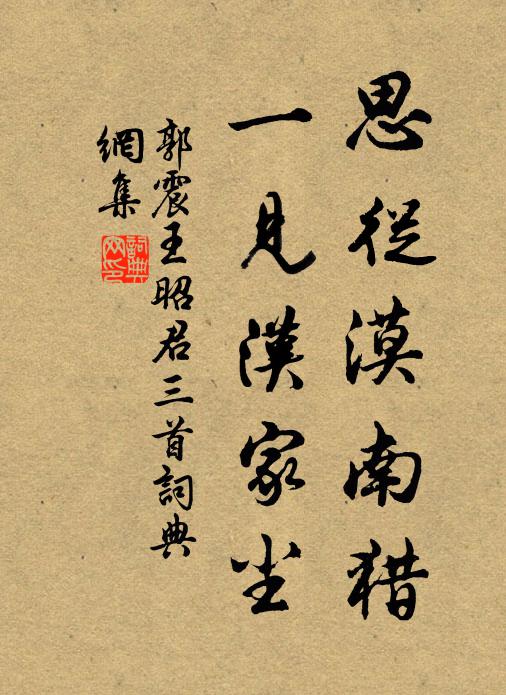 思從漠南猎
一見漢家尘
郭震王昭君三首詞典
網集
詞典
网印